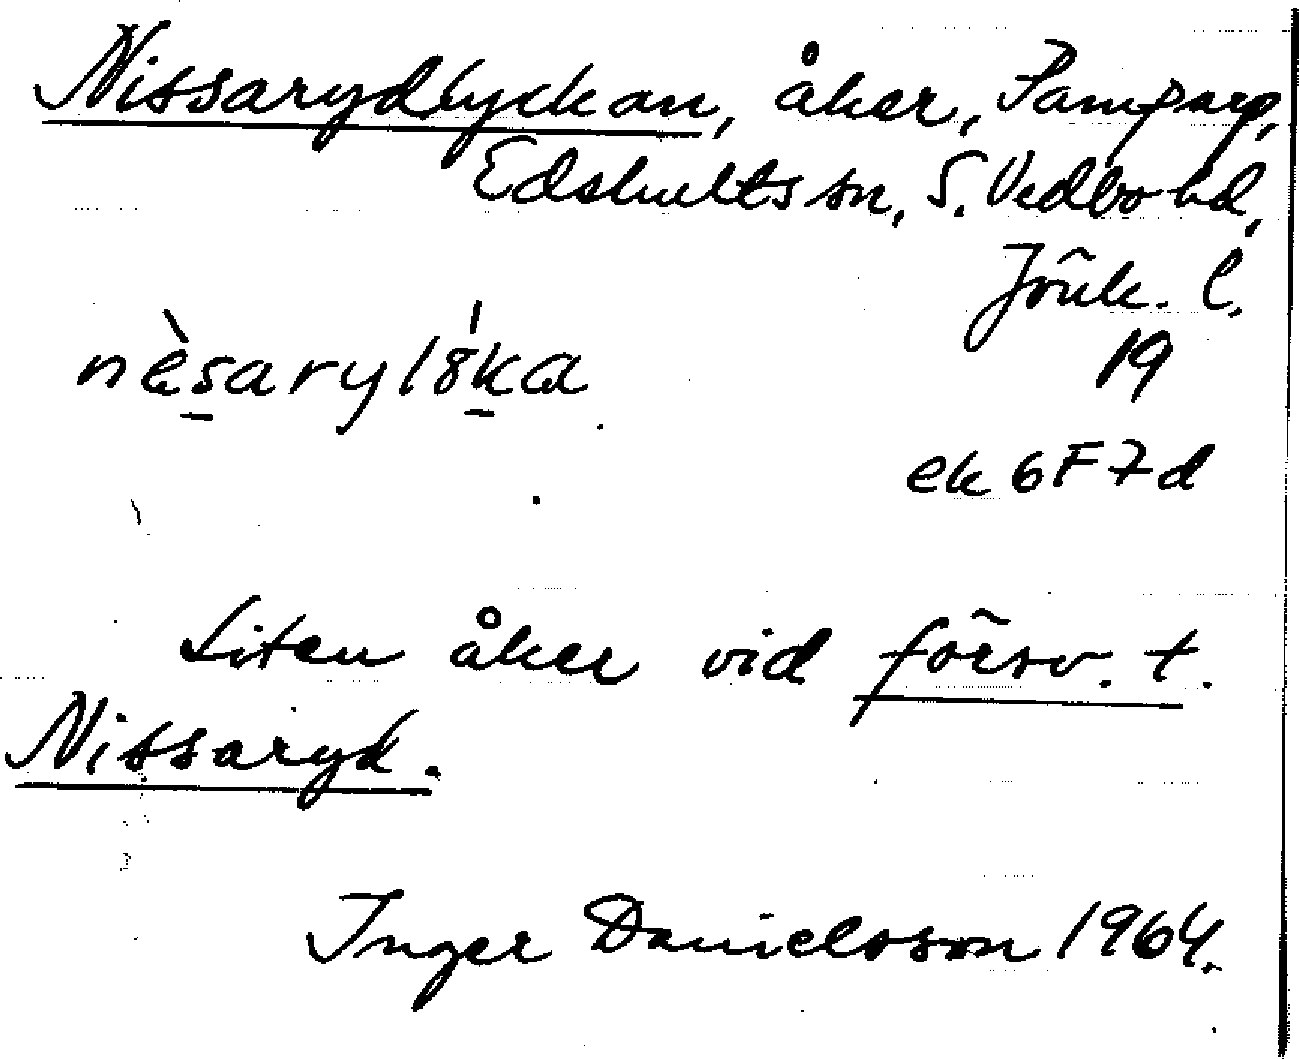 Nissarydlyckan, åker, Pamparp,
Edshults sn, S. Vedbo hd,
Jönk. l.
nèsarylöka
19
ek 6F7d
Liten åker vid försv. t.
Nissaryd.
Inger Danielsson 1964.